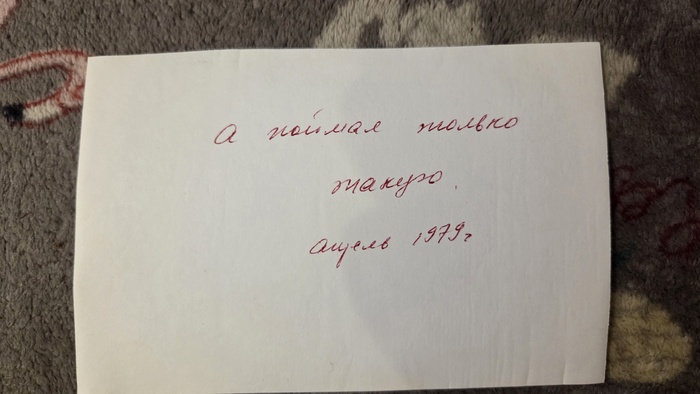 А поймал только
такую.
апрель 1979г